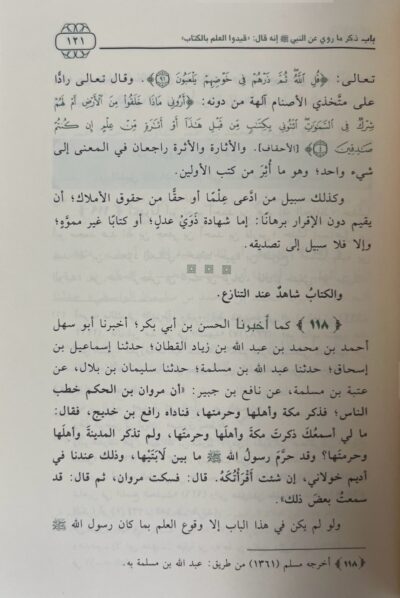 باب ذكر ما روي عن النبي ﷺ إنه قال: «قيدوا العلم بالكتاب»
١٢١
تعالى: ﴿قُلِ اللَّهُ ثُمَّ ذَرْهُمْ فِي خَوْضِهِمْ يَلْعَبُونَ ٩١﴾. وقال تعالى رادًّا
على متَّخذي الأصنام آلهة من دونه: ﴿أَرُونِي مَاذَا خَلَقُوا مِنَ الْأَرْضِ أَمْ لَهُمْ
شِرْكٌ فِي السَّمَاوَاتِ ائْتُونِي بِكِتَابٍ مِّن قَبْلِ هَذَا أَوْ أَثَارَةٍ مِّنْ عِلْمٍ إِن كُنتُمْ
صَادِقِينَ ٤﴾ [الأحقاف]. والأثارة والأثرة راجعان في المعنى إلى
شيء واحد؛ وهو ما أُثِرَ من كتب الأولين.
وكذلك سبيل من ادَّعى عِلْمًا أو حقًّا من حقوق الأملاك؛ أن
يقيم دون الإقرار برهانًا: إما شهادة ذَوَيْ عدلٍ؛ أو كتابًا غير مموَّهٍ؛
وإلا فلا سبيل إلى تصديقه.
والكتابُ شاهدٌ عند التنازع.
﴿١١٨﴾ كما أخبرنا الحسن بن أبي بكر؛ أخبرنا أبو سهل
أحمد بن محمد بن عبد الله بن زياد القطان؛ حدثنا إسماعيل بن
إسحاق؛ حدثنا عبد الله بن مسلمة؛ حدثنا سليمان بن بلال، عن
عتبة بن مسلمة، عن نافع بن جبير: «أن مروان بن الحكم خطب
الناس؛ فذكر مكة وأهلها وحرمتها، فناداه رافع بن خديج، فقال:
ما لي أسمعُكَ ذكرتَ مكةَ وأهلَها وحرمتَها، ولم تذكر المدينةَ وأهلَها
وحرمتَها؟ وقد حرَّمَ رسولُ الله ﷺ ما بين لَابَتَيْها، وذلك عندنا في
أديم خولاني، إن شئت أَقْرَأْتُكَهُ. قال: فسكت مروان، ثم قال: قد
سمعتُ بعضَ ذلك».
ولو لم يكن في هذا الباب إلا وقوع العلم بما كان رسول الله ﷺ
﴿١١٨﴾ أخرجه مسلم (١٣٦١) من طريق: عبد الله بن مسلمة به.